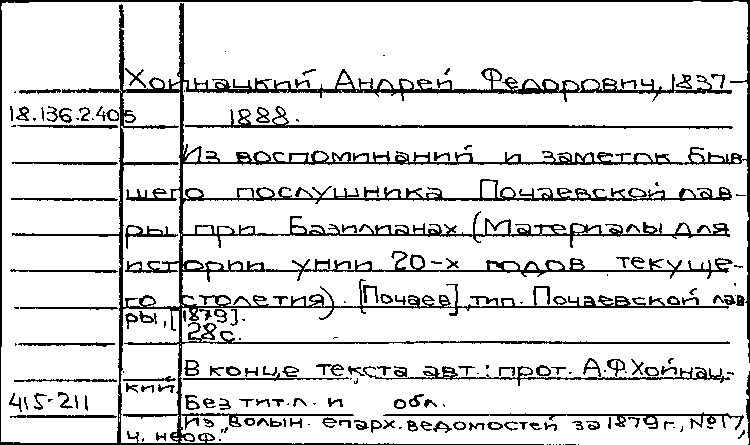 Хойнацкий, Андрей Федорович, 1837-
18.136.2.405 1888.
Из воспоминаний и заметок быв-
шего послушника Почаевской лав-
ры при Базилианах (Материалы для
истории унии 20-х годов текуще-
го столетия). [Почаев], тип. Почаевской лав-
ры, [1879].
28 с.
В конце текста авт.: прот. А.Ф. Хойнац-
кий
415-211 Без тит. л. и обл.
"Из Волын. епарх. ведомостей за 1879 г., №17,
ч. неоф."